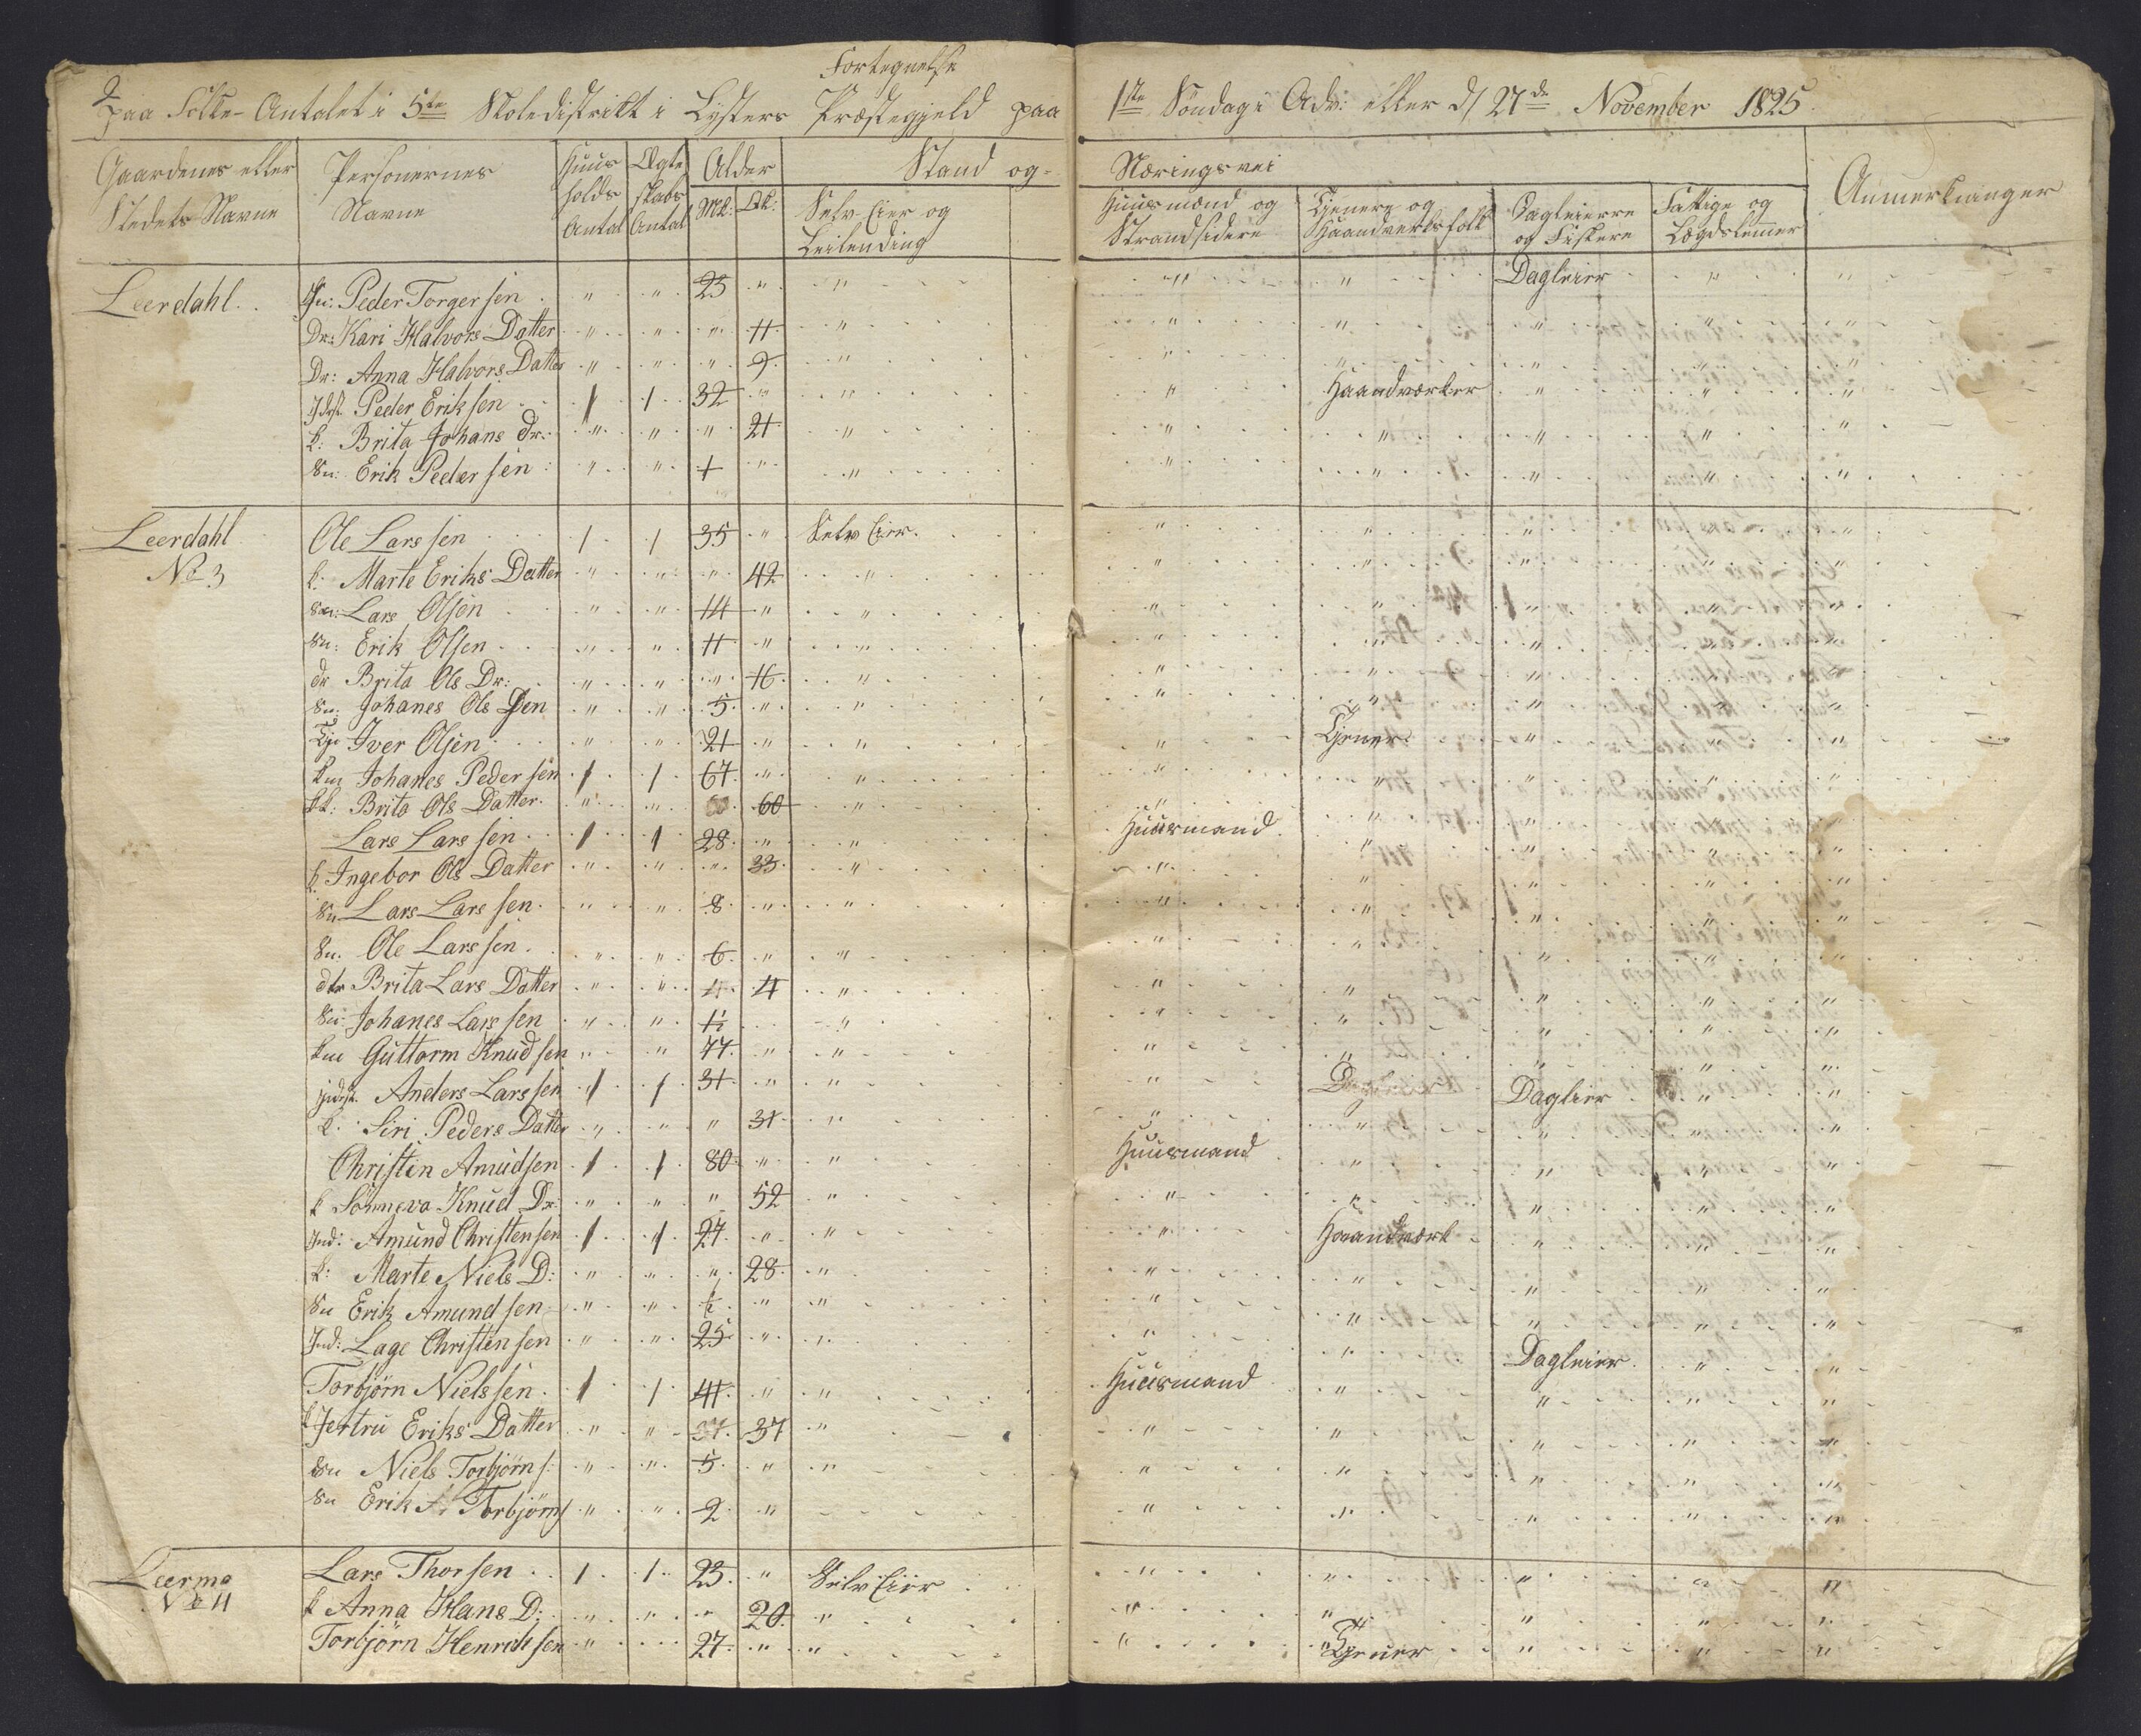 Fortegnelse
paa Folke-Antalet i 5te Skoledistrikt i Lysters Præstegjeld paa 1ste Søndag i Adv: eller d/ 27de November 1825
Gaardenes eller Stedets Navne | Personernes Navne | Huusholds Antal | Ægteskabs Antal | Alder Mk: Qk: | Stand og Næringsvei
Selv Eier og Leilending | Huusmænd og Strandsidere | Tjenere og Haandverksfolk | Dagleiere og Fiskere | Fattige og Lægdslemmer | Anmerkninger
Leerdahl. Peder Torgersen " " 25 " " " " Dagleier " "
Dr: Kari Halvors Datter " " " 11 " " " " " "
Dr: Anna Halvors Datter " " " 9 " " " " " "
Peder Eriksen 1 1 32 " " " Haandværker " " "
k: Brita Johans Dr: " " " 21 " " " " " "
Sn: Erik Pedersen " " 1 " " " " " " "
Leerdahl No 3 Ole Larssen 1 1 35 " Selv Eier " " " " "
k: Marte Eriks Datter " " " 42 " " " " " "
Sn: Lars Olsen " " 14 " " " " " " "
Sn: Erik Olsen " " 11 " " " " " " "
dr Brita Ols Dr: " " " 16 " " " " " "
Sn: Johanes Ols Sen " " 5 " " " " " " "
Tje Iver Olsen " " 21 " " " Tjener " " "
Km Johanes Pedersen 1 1 67 " " " " " " "
kk: Brita Ols Datter " " 60 " " " " " "
Lars Larssen 1 1 28 " " Huusmand " " " "
k Ingebor Ols Datter " " " 33 " " " " " "
Sn Lars Larssen " " 8 " " " " " " "
Sn. Ole Larssen " " 6 " " " " " " "
dtr Brita Lars Datter " " 4 " " " " " "
Sn Johanes Larssen " " 1½ " " " " " "
Km Guttorm Knudsen " " 77 " " " " " " "
Inderst. Anders Larssen 1 1 31 " " " Daglier " "
k: Siri Peders Datter " " " 31 " " " " " "
Christin Amudsen 1 1 80 " " Huusmand " " " "
k Sønneva Knud Dr: " " " 52 " " " " " "
Ind: Amund Christensen 1 1 27 " " " Haandværk " " "
k: Marte Niels D: " " " 28 " " " " " "
Sn Erik Amundsen " " ½ " " " " " " "
Ind: Lage Christensen " " 25 " " " " Dagleier " "
Torbjørn Nielssen 1 1 41 " " Huusmand " " " "
k Jertru Eriks Datter " " 37 " " " " " "
Sn Niels Torbjørns: " " 5 " " " " " " "
Sn Erik Torbjørns " " 2 " " " " " "
Leermo No 4 Lars Thorsen 1 1 23 " Selv Eier " " " " "
k Anna Hans D: " " " 20 " " " " " "
Torbjørn Henriksen " 27 " " " Tjener " " "